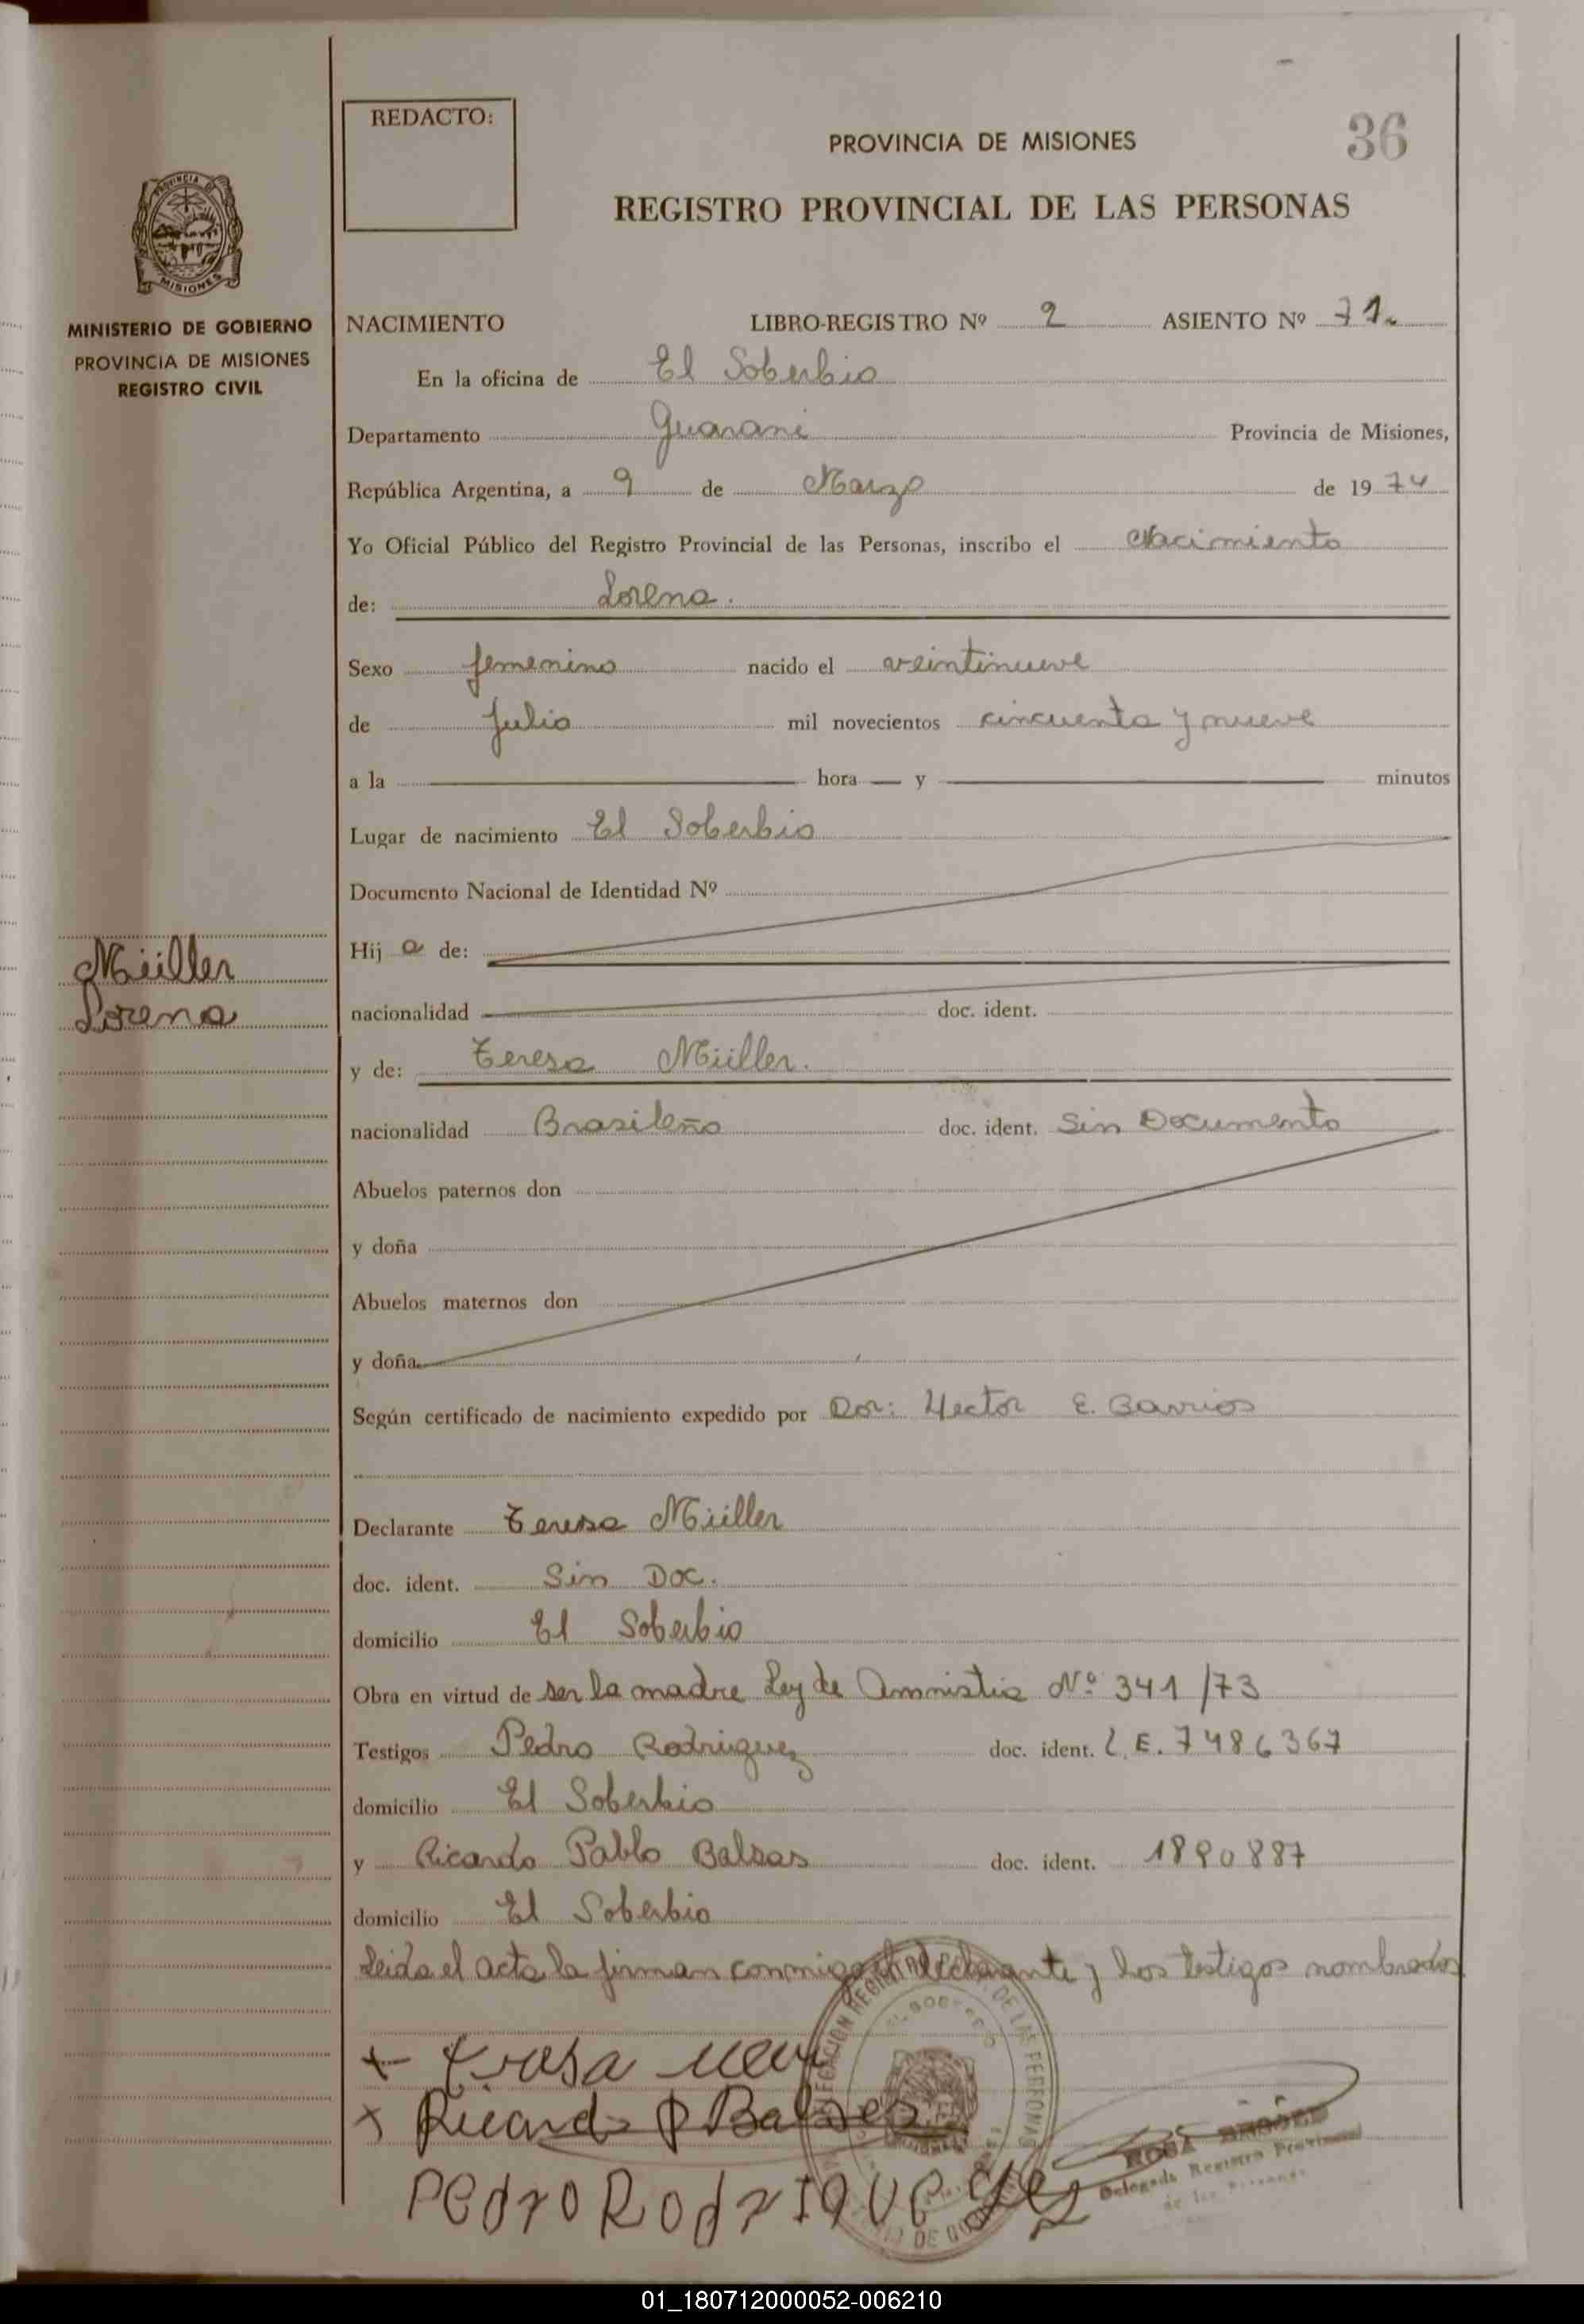 REDACTO:
36
PROVINCIA DE MISIONES
REGISTRO PROVINCIAL DE LAS PERSONAS
PROVINCIA DE
MISIONES
MINISTERIO DE GOBIERNO
PROVINCIA DE MISIONES
REGISTRO CIVIL
NACIMIENTO LIBRO-REGISTRO Nº 2 ASIENTO Nº 71.
En la oficina de El Soberbio
Departamento Guarani Provincia de Misiones,
República Argentina, a 9 de Marzo de 1974
Yo Oficial Público del Registro Provincial de las Personas, inscribo el Nacimiento
de: Lorena.
Sexo femenino nacido el veintinueve
de Julio mil novecientos cincuenta y nueve
a la hora y minutos
Lugar de nacimiento El Soberbio
Documento Nacional de Identidad Nº
Müller
Lorena
Hij a de:
nacionalidad doc. ident.
y de: Teresa Müller.
nacionalidad Brasileña doc. ident. Sin Documento
Abuelos paternos don
y doña
Abuelos maternos don
y doña
Según certificado de nacimiento expedido por Dor: Hector E. Barrios
Declarante Teresa Müller
doc. ident. Sin Doc.
domicilio El Soberbio
Obra en virtud de ser la madre Ley de Amnistia Nº 341/73
Testigos Pedro Rodriguez doc. ident. L.E. 7486367
domicilio El Soberbio
y Ricardo Pablo Balsas doc. ident. 1890887
domicilio El Soberbio
Leida el acta la firman conmigo declarante y los testigos nombrados
Ricardo P Balsas
Pedro Rodrigue
ROSA
Delegada Registro Provincial
de las Personas
01_180712000052-006210